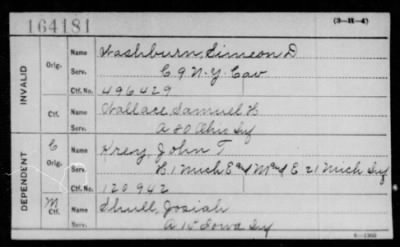 164181
(3-H-4)
INVALID
Orig.
Name Washburn Simeon D
Serv. C 9 N.Y. Cav
Ctf. No. 496429
Ctf.
Name Wallace Samuel B
Serv. A 80 Ohio Inf
DEPENDENT
C
Orig.
Name Krey, John T
Serv. B 1 Mich Eng & E 21 Mich Inf
Ctf. No. 120942
M
Ctf.
Name Shull, Josiah
Serv. A 15 Iowa Inf